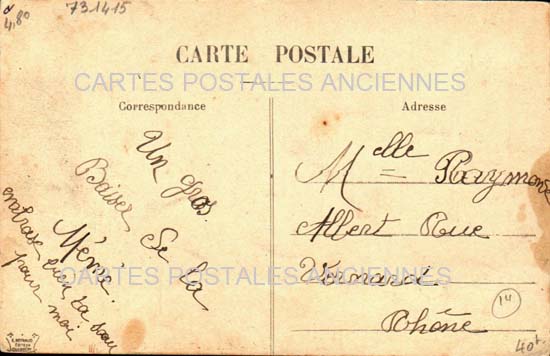 4,80
731415
CARTE POSTALE
CARTES POSTALES ANCIENNES
Correspondance
Adresse
Un gros
Baiser De La
Mémé.
embrasse bien ta
pour moi
Melle Raymond
Albert Rue
Rhône
CARTES POSTALES ANCIENNES
14
40f